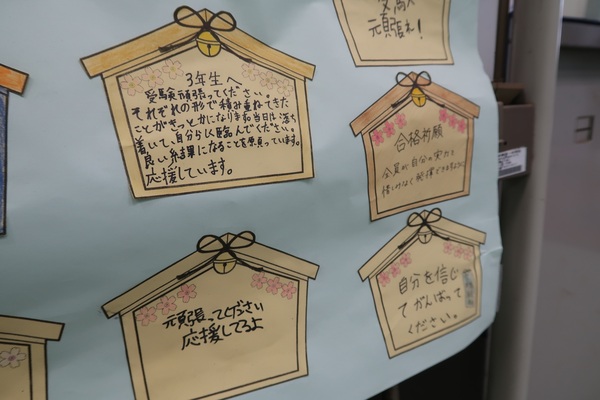 3年生へ
受験頑張ってください。
それぞれの形で積み重ねてきた
ことがきっとかになります。当日は落ち
着いて、自分らしく臨んでください。
良い結果になることを願っています。
応援しています。
頑張れ！
合格祈願
全員が自分の実力を
惜しみなく発揮できますように
頑張ってください
応援してるよ
自分を信じ
てがんばって
ください。